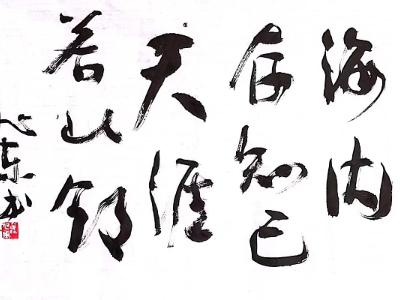 海内
存知己
天涯
若比邻